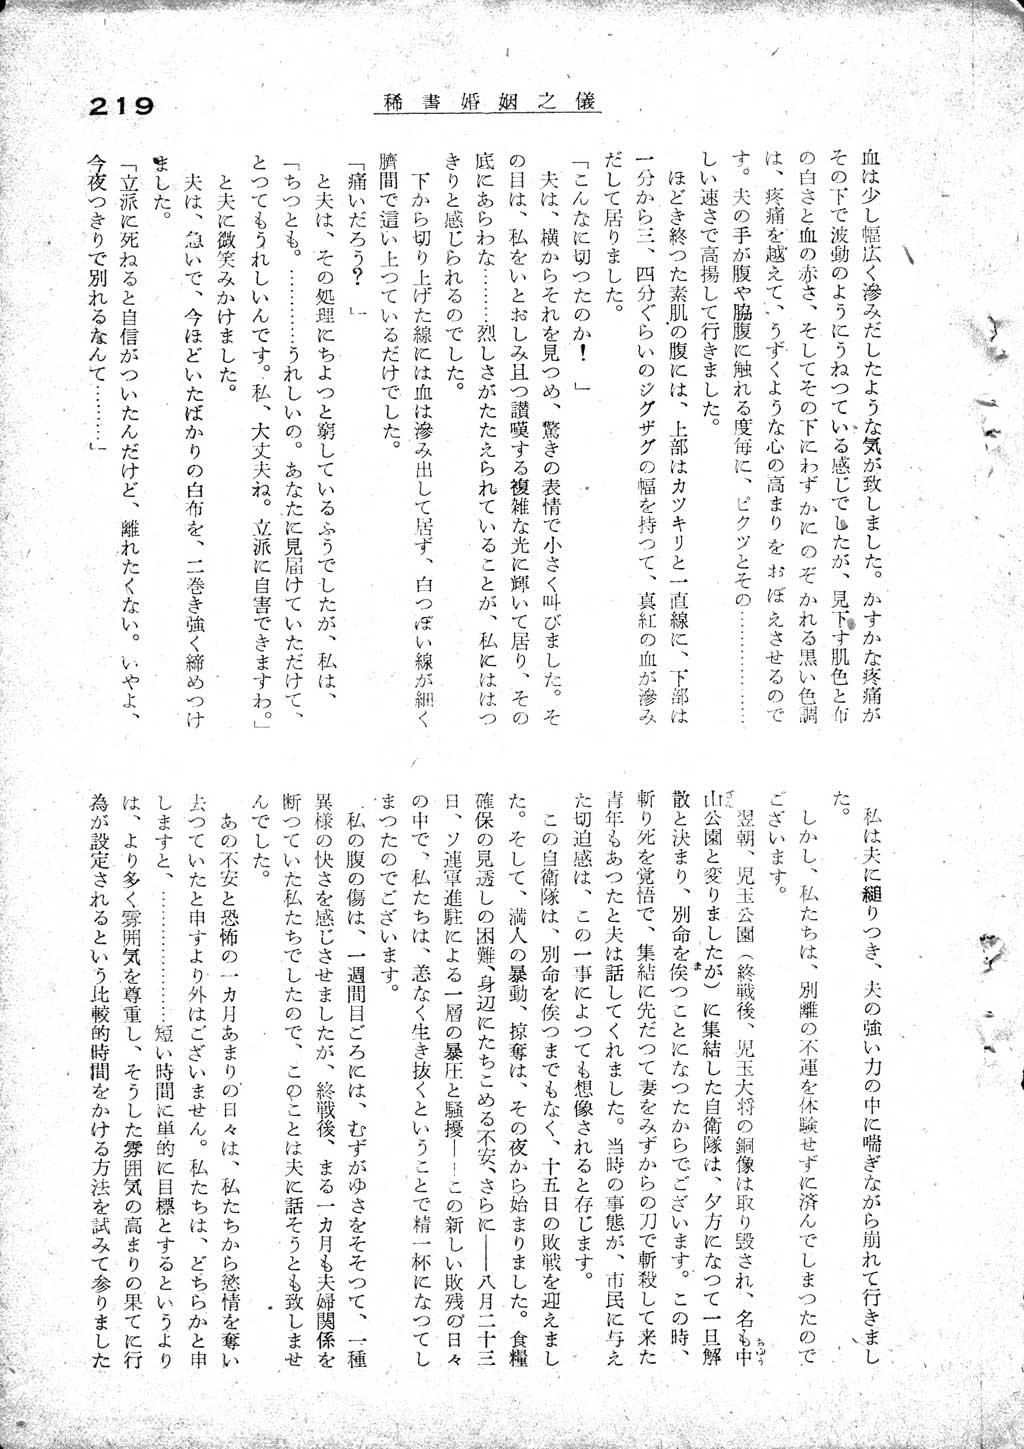 219
稀書婚姻之儀
血は少し幅広く滲みだしたような気が致しました。かすかな疼痛が
その下で波動のようにうねつている感じでしたが、見下す肌色と布
の白さと血の赤さ、そしてその下にわずかにのぞかれる黒い色調
は、疼痛を越えて、うずくような心の高まりをおぼえさせるので
す。夫の手が腹や脇腹に触れる度毎に、ピクツとその……………
しい速さで高揚して行きました。
ほどき終つた素肌の腹には、上部はカツキリと一直線に、下部は
一分から三、四分ぐらいのジグザグの幅を持つて、真紅の血が滲み
だして居りました。
「こんなに切つたのか！」
夫は、横からそれを見つめ、驚きの表情で小さく叫びました。そ
の目は、私をいとおしみ且つ讃嘆する複雑な光に輝いて居り、その
底にあらわな………烈しさがたたえられていることが、私にははつ
きりと感じられるのでした。
下から切り上げた線には血は滲み出して居ず、白つぽい線が細く
臍間で這い上つているだけでした。
「痛いだろう？」
と夫は、その処理にちよつと窮しているふうでしたが、私は、
「ちつとも。…………うれしいの。あなたに見届けていただけて、
とつてもうれしいんです。私、大丈夫ね。立派に自害できますわ。」
と夫に微笑みかけました。
夫は、急いで、今ほどいたばかりの白布を、二巻き強く締めつけ
ました。
「立派に死ねると自信がついたんだけど、離れたくない。いやよ、
今夜つきりで別れるなんて…………」
私は夫に縋りつき、夫の強い力の中に喘ぎながら崩れて行きまし
た。
しかし、私たちは、別離の不運を体験せずに済んでしまつたので
ございます。
翌朝、児玉公園（終戦後、児玉大将の銅像は取り毀され、名も中
山公園と変りましたが）に集結した自衛隊は、夕方になつて一旦解
散と決まり、別命を俟つことになつたからでございます。この時、
斬り死を覚悟で、集結に先だつて妻をみずからの刀で斬殺して来た
青年もあつたと夫は話してくれました。当時の事態が、市民に与え
た切迫感は、この一事によつても想像されると存じます。
この自衛隊は、別命を俟つまでもなく、十五日の敗戦を迎えまし
た。そして、満人の暴動、掠奪は、その夜から始まりました。食糧
確保の見透しの困難、身辺にたちこめる不安、さらに――八月二十三
日、ソ連軍進駐による一層の暴圧と騒擾――この新しい敗残の日々
の中で、私たちは、恙なく生き抜くということで精一杯になつてし
まつたのでございます。
私の腹の傷は、一週間目ごろには、むずがゆさをそそつて、一種
異様の快さを感じさせましたが、終戦後、まる一カ月も夫婦関係を
断つていた私たちでしたので、このことは夫に話そうとも致しませ
んでした。
あの不安と恐怖の一カ月あまりの日々は、私たちから慾情を奪い
去つていたと申すより外はございません。私たちは、どちらかと申
しますと、…………………短い時間に単的に目標とするというより
は、より多く雰囲気を尊重し、そうした雰囲気の高まりの果てに行
為が設定されるという比較的時間をかける方法を試みて参りました